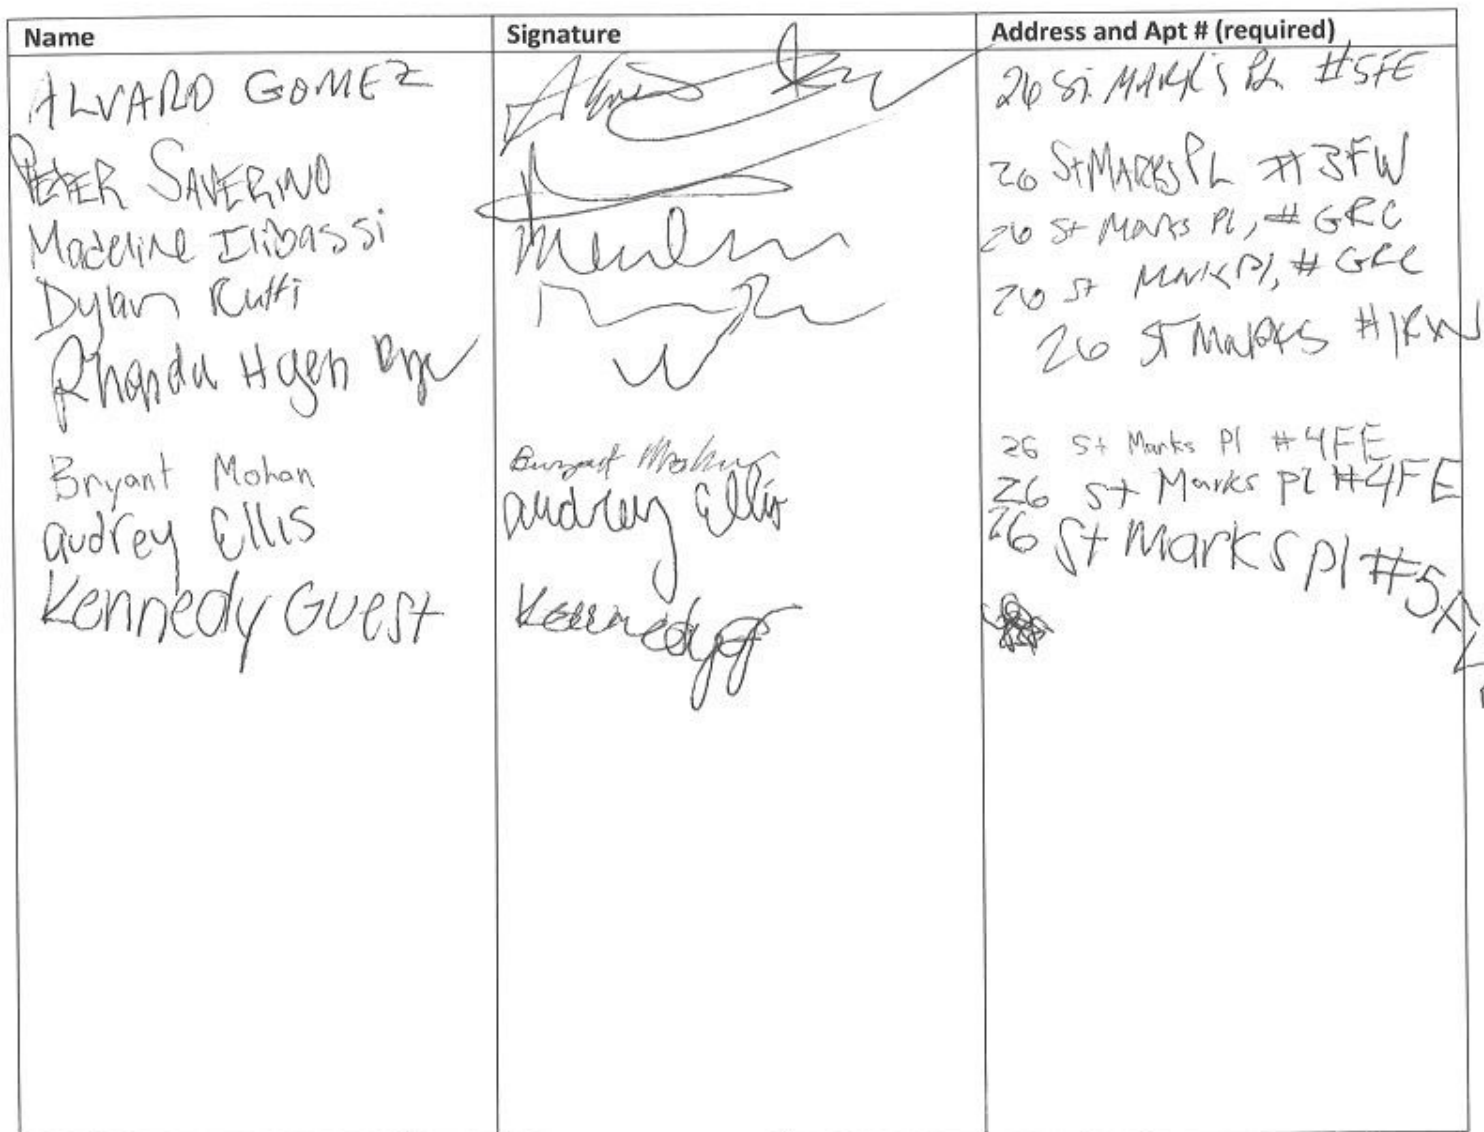 Name Signature Address and Apt # (required)
ALVARO GOMEZ 26 St. MARK'S PL #5FE
PETER SAVERINO 26 St MARKS PL #3FW
Madeline Ilibassi 26 St Marks Pl, # GRC
Dylan 26 St Mark Pl, # GRC
26 St MARKS
Bryant Mohan Bryant Mohan 26 St Marks Pl #4FE
audrey Ellis audrey Ellis 26 St Marks Pl #4FE
Kennedy Guest 26 St Marks pl